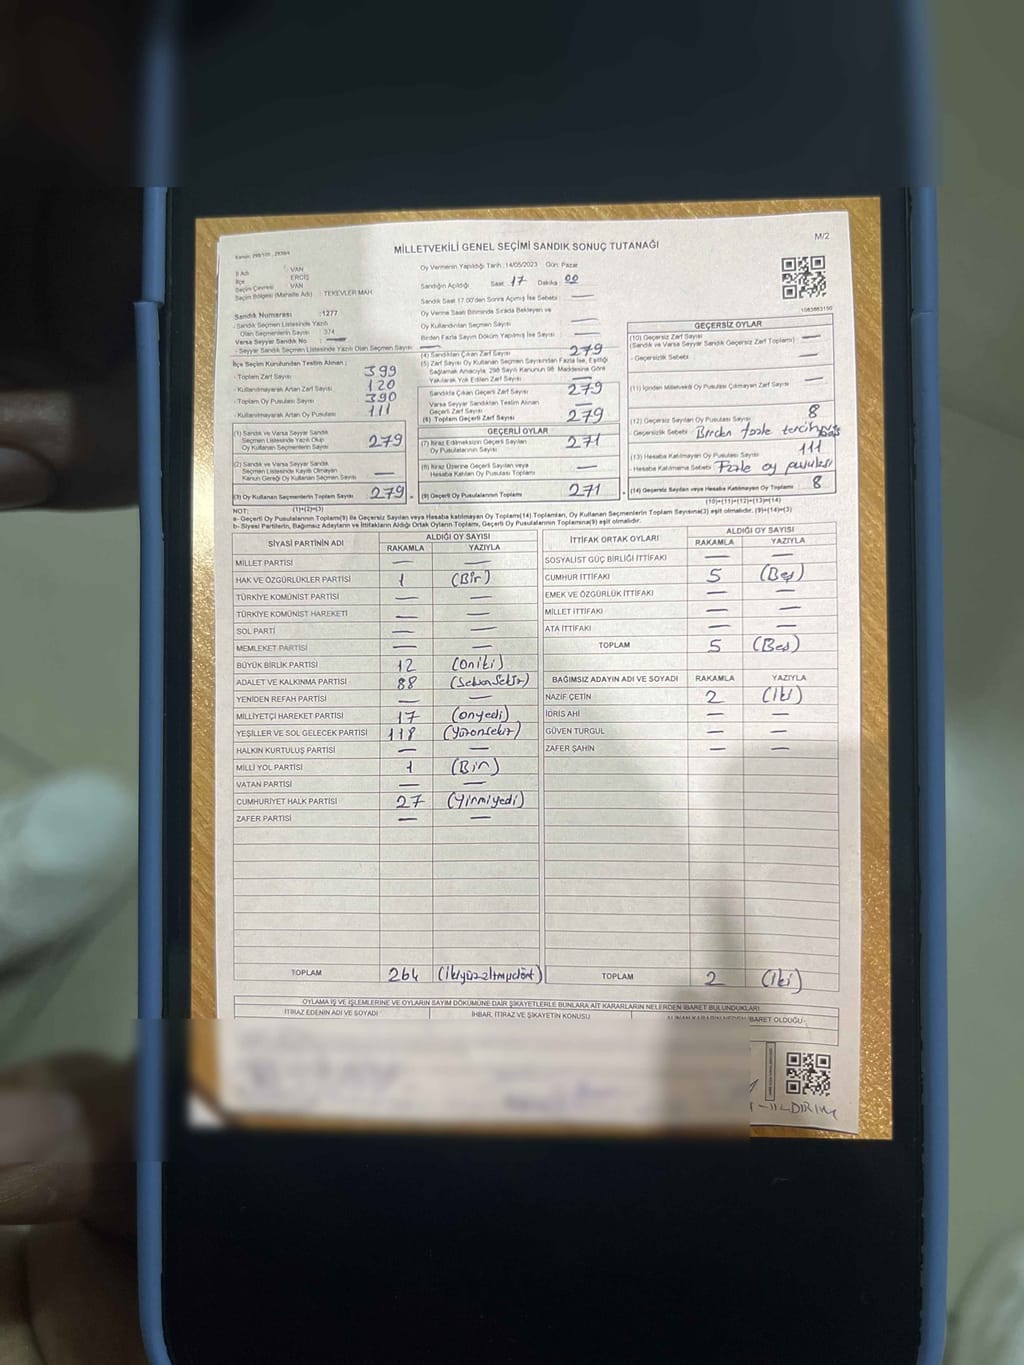 M/2
MİLLETVEKİLİ GENEL SEÇİMİ SANDIK SONUÇ TUTANAĞI
İl Adı : VAN
İlçe : ERCİŞ
Seçim Çevresi : VAN
Seçim Bölgesi (Mahalle Adı) : TEKEVLER MAH.
Oy Vermenin Yapıldığı Tarih : 14/05/2023 Gün: Pazar
Sandığın Açıldığı Saat 17 Dakika 00
Sandık Saat 17.00'den Sonra Açılmış İse Sebebi —
Oy Verme Saati Bitiminde Sırada Bekleyen ve
Oy Kullandırılan Seçmen Sayısı —
Birden Fazla Sayım Döküm Yapılmış İse Sayısı —
1083663150
Sandık Numarası :1277
- Sandık Seçmen Listesinde Yazılı
Olan Seçmenlerin Sayısı : 374
Varsa Seyyar Sandık No : —
- Seyyar Sandık Seçmen Listesinde Yazılı Olan Seçmen Sayısı —
İlçe Seçim Kurulundan Teslim Alınan ;
- Toplam Zarf Sayısı 399
- Kullanılmayarak Artan Zarf Sayısı 120
- Toplam Oy Pusulası Sayısı 390
- Kullanılmayarak Artan Oy Pusulası 111
(1) Sandık ve Varsa Seyyar Sandık
Seçmen Listesinde Yazılı Olup
Oy Kullanan Seçmenlerin Sayısı 279
(2) Sandık ve Varsa Seyyar Sandık
Seçmen Listesinde Kayıtlı Olmayan
Kanun Gereği Oy Kullanan Seçmen Sayısı —
(3) Oy Kullanan Seçmenlerin Toplam Sayısı 279
(1)+(2)=(3)
(4) Sandıktan Çıkan Zarf Sayısı 279
(5) Zarf Sayısı Oy Kullanan Seçmen Sayısından Fazla İse, Eşitliği
Sağlamak Amacıyla, 298 Sayılı Kanunun 98. Maddesine Göre
Yakılarak Yok Edilen Zarf Sayısı —
Sandıkta Çıkan Geçerli Zarf Sayısı 279
Varsa Seyyar Sandıktan Teslim Alınan
Geçerli Zarf Sayısı —
(6) Toplam Geçerli Zarf Sayısı 279
GEÇERLİ OYLAR
(7) İtiraz Edilmeksizin Geçerli Sayılan
Oy Pusulasının Sayısı 271
(8) İtiraz Üzerine Geçerli Sayılan veya
Hesaba Katılan Oy Pusulası Toplamı —
(9) Geçerli Oy Pusulalarının Toplamı 271
GEÇERSİZ OYLAR
(10) Geçersiz Zarf Sayısı
(Sandık ve Varsa Seyyar Sandık Geçersiz Zarf Toplamı) —
- Geçersizlik Sebebi —
(11) İçinden Milletvekili Oy Pusulası Çıkmayan Zarf Sayısı —
(12) Geçersiz Sayılan Oy Pusulası Sayısı 8
- Geçersizlik Sebebi Birden fazla tercih
(13) Hesaba Katılmayan Oy Pusulası Sayısı 111
- Hesaba Katılmama Sebebi Fazla oy pusulası
(14) Geçersiz Sayılan veya Hesaba Katılmayan Oy Toplamı 8
(10)+(11)+(12)+(13)=(14)
NOT:
a- Geçerli Oy Pusulalarının Toplamı(9) ile Geçersiz Sayılan veya Hesaba katılmayan Oy Toplamı(14) Toplamları, Oy Kullanan Seçmenlerin Toplam Sayısına(3) eşit olmalıdır. (9)+(14)=(3)
b- Siyasi Partilerin, Bağımsız Adayların ve İttifakların Aldığı Ortak Oyların Toplamı, Geçerli Oy Pusulalarının Toplamına(9) eşit olmalıdır.
SİYASİ PARTİNİN ADI ALDIĞI OY SAYISI
RAKAMLA YAZIYLA
MİLLET PARTİSİ — —
HAK VE ÖZGÜRLÜKLER PARTİSİ 1 (Bir)
TÜRKİYE KOMÜNİST PARTİSİ — —
TÜRKİYE KOMÜNİST HAREKETİ — —
SOL PARTİ — —
MEMLEKET PARTİSİ — —
BÜYÜK BİRLİK PARTİSİ 12 (Oniki)
ADALET VE KALKINMA PARTİSİ 88 (Seksensekiz)
YENİDEN REFAH PARTİSİ — —
MİLLİYETÇİ HAREKET PARTİSİ 17 (onyedi)
YEŞİLLER VE SOL GELECEK PARTİSİ 118 (Yüzonsekiz)
HALKIN KURTULUŞ PARTİSİ — —
MİLLİ YOL PARTİSİ 1 (Bir)
VATAN PARTİSİ — —
CUMHURİYET HALK PARTİSİ 27 (Yirmiyedi)
ZAFER PARTİSİ — —
TOPLAM 264 (İkiyüzaltmışdört)
İTTİFAK ORTAK OYLARI ALDIĞI OY SAYISI
RAKAMLA YAZIYLA
SOSYALİST GÜÇ BİRLİĞİ İTTİFAKI — —
CUMHUR İTTİFAKI 5 (Beş)
EMEK VE ÖZGÜRLÜK İTTİFAKI — —
MİLLET İTTİFAKI — —
ATA İTTİFAKI — —
TOPLAM 5 (Beş)
BAĞIMSIZ ADAYIN ADI VE SOYADI RAKAMLA YAZIYLA
NAZİF ÇETİN 2 (İki)
İDRİS AHİ — —
GÜVEN TURGUL — —
ZAFER ŞAHİN — —
TOPLAM 2 (İki)
OYLAMA İŞ VE İŞLEMLERİNE VE OYLARIN SAYIM DÖKÜMÜNE DAİR ŞİKAYETLERLE BUNLARA AİT KARARLARIN NELERDEN İBARET BULUNDUKLARI
İTİRAZ EDENİN ADI VE SOYADI İHBAR, İTİRAZ VE ŞİKAYETİN KONUSU ALINAN KARARIN NEDEN İBARET OLDUĞU